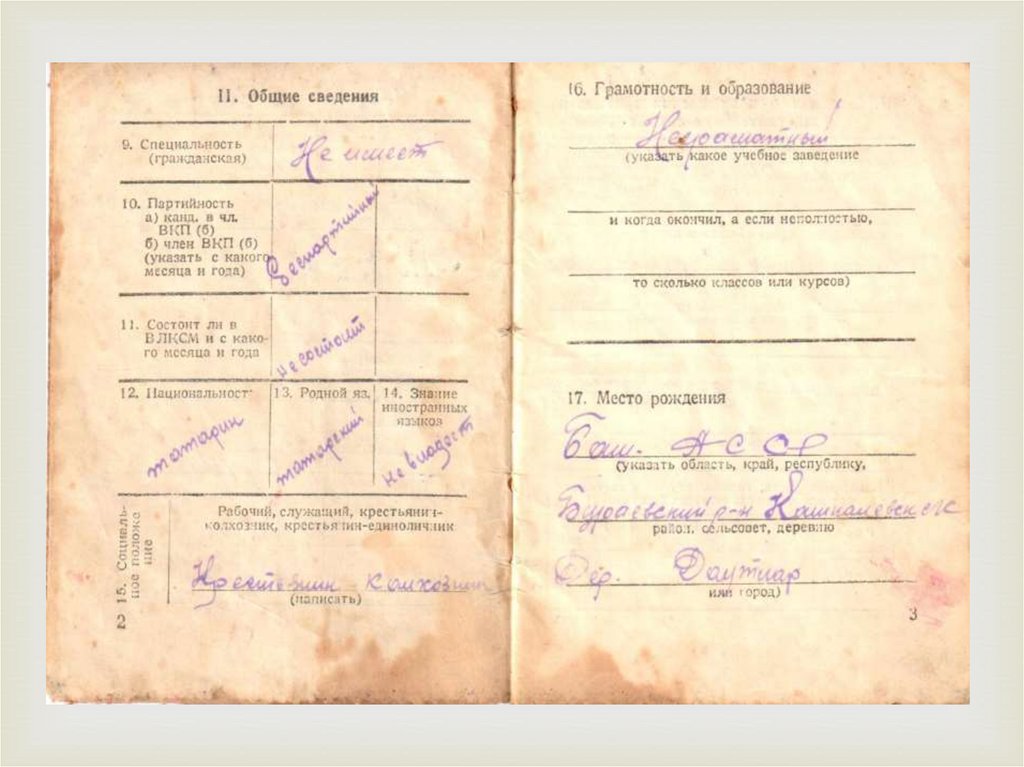 II. Общие сведения
9. Специальность
(гражданская)
Не имеет
10. Партийность
а) канд. в чл.
ВКП (б)
б) член ВКП (б)
(указать с какого
месяца и года)
Беспартийный
11. Состоит ли в
ВЛКСМ и с како-
го месяца и года
не состоит
12. Национальност
татарин
13. Родной яз.
татарский
14. Знание
иностранных
языков
не владеет
15. Социаль-
ное положе
ние
Рабочий, служащий, крестьянин-
колхозник, крестьянин-единоличник
Крестьянин колхозник
(написать)
2
16. Грамотность и образование
Неграматный
(указать какое учебное заведение
и когда окончил, а если неполностью,
то сколько классов или курсов)
17. Место рождения
Баш. АССР
(указать область, край, республику,
Бураевский р-н
район, сельсовет, деревню
Дер. Даутлар
или город)
3